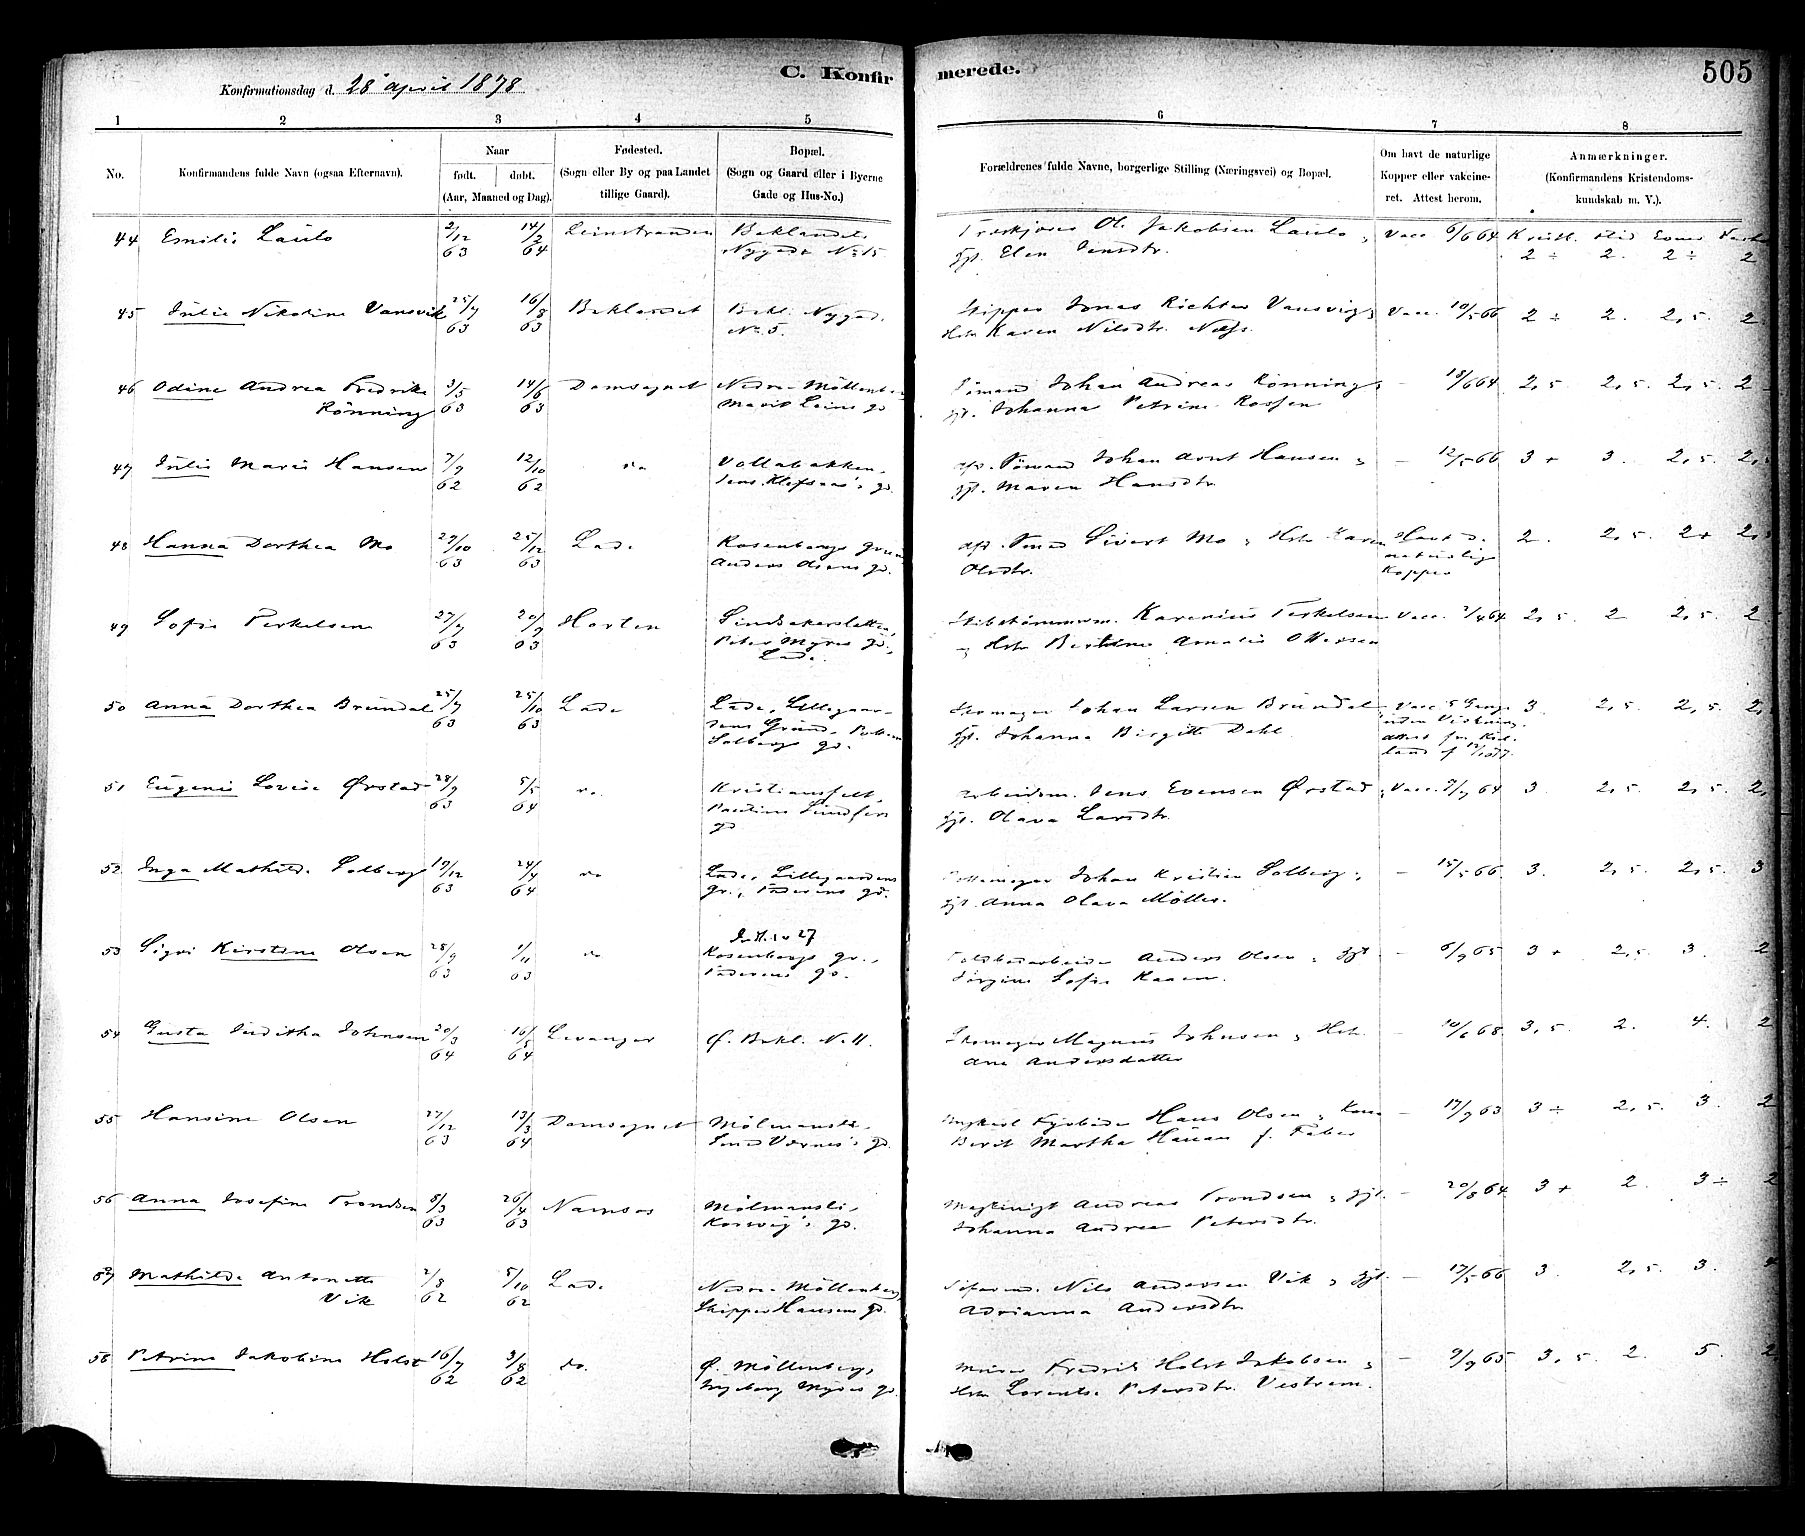 C. Konfirmerede.
505
Konfirmationsdag d. 28 april 1878
1 2 3 4 5 6 7 8
No.
Konfirmandens fulde Navn (ogsaa Efternavn).
Naar
født. døbt.
(Aar, Maaned og Dag).
Fødested.
(Sogn eller By og paa Landet
tillige Gaard).
Bopæl.
(Sogn og Gaard eller i Byerne
Gade og Hus-No.)
Forældrenes fulde Navne, borgerlige Stilling (Næringsvei) og Bopæl.
Om havt de naturlige
Kopper eller vakcine-
ret. Attest herom.
Anmærkninger.
(Konfirmandens Kristendoms-
kundskab m. V.).
44 Emilie Laulo 2/12 14/2 Leinstranden Baklandet Ole Jakobsen Laulo Vacc. 6/6 64 Kristl. Flid
63 64 Nygade No 15 gjt. Elen Jensdtr. 2 ÷ 2. 2 ÷ 2
45 Julie Nikoline Vansvik 25/7 16/8 Baklandet Bakl. Nygd. Skipper Jonas Richter Vansvig Vacc. 10/5 66 2 ÷ 2. 2,5. 2
63 63 No 5. Hst. Karen Nilsdtr. Næss.
46 Odine Andrea Fredrikke 3/5 14/6 Domsognet Nedre Möllenberg Sömand Johan Andreas Rönning, – 18/6 64 2,5 2,5. 2,5. 2
Rönning 63 63 gd. gjt. Johanna Petrine
47 Julie Marie Hansen 7/9 12/10 do Vollabakken, afd. Sömand Johan Arnt Hansen, – 12/5 66 3 + 3. 2,5. 2,5
62 62 Jens gd. gjt. Maren Hansdtr.
48 Hanna Dorthea Mo 29/10 25/12 Lade Rosenborgs Grund afd. Sömd Sivert Mo, Hst. Karen Havt d. 2. 2,5. 2 + 2,5
63 63 Anders Olsens gd. Olsdtr. naturlige
Kopper
49 Sofie Terkelsen 27/7 20/9 Horten Karenius Terkelsen Vacc. 2/4 64 2,5. 2 2,5. 2
63 63 Peter Myres gd., Hst. Amalie Ottersen
Lade.
50 Anna Dorthea Brundal 25/7 25/10 Lade Lade, Lillegaar- Skomager Johan Larsen Brundal 3. 2,5. 2,5. 2,
63 63 dens Grund, gjt. Johanna Birgitte Dahl
Solbergs gd.
51 Eugenie Lovise Ørstad 28/9 5/5 do. Kristiansfelt, Arbeidsm. Jens Evensen Ørstad, Vacc. 9/7 64 3. 2,5. 2,5. 2,
63 64 gd gjt. Olava Larsdtr.
52 Inga Mathilde Solberg 19/12 24/4 do Lade, Lillegaardens Pottemager Johan Kristian Solberg, – 15/5 66. 3. 2,5. 2,5. 3
63 64 gr., Faderens gd. gjt. Anna Olava Möller.
53 Sigri Kirstine Olsen 28/9 1/11 do Rosenborgs gr., Anders Olsen, gjt – 6/9 65 3 + 2,5. 3. 2
63 63 Faderens gd. Jörgine Sofie
54 Gusta Juditha Johnsen 20/3 16/5 Levanger Ø. Bakl. N. 11. Skomager Magnus Johnsen, Hst. – 10/6 68. 3,5. 2. 4. 2
64 64 Ane Andersdatter
55 Hansine Olsen 27/12 13/3 Domsognet Hans Olsen, – 17/9 63 3 ÷ 2,5. 3. 2
63 64 gd. Berit Martha f. Faber
56 Anna Josefine Trondsen 5/3 26/4 Namsos Andreas Trondsen, gjt. – 20/8 64 3 + 2. 3 ÷ 2
63 63 gd. Johanna Andrea Petersdtr.
57 Mathilde Antonette 2/8 5/10 Lade Nedre Möllenberg, Nils Andersen Vik, gjt. – 17/5 66 3. 2,5. 3. 4
Vik 62 62 Skipper Hansens gd. Adrianna Andersdtr.
58 Petrine Jakobine Holst 16/7 3/8 do. Ø. Möllenberg, Murer Fredrik Holst Jakobsen, – 9/9 65 3,5. 2. 5. 2
62 62 Ingeborg gd. Hst. Lorentze Petersdtr.